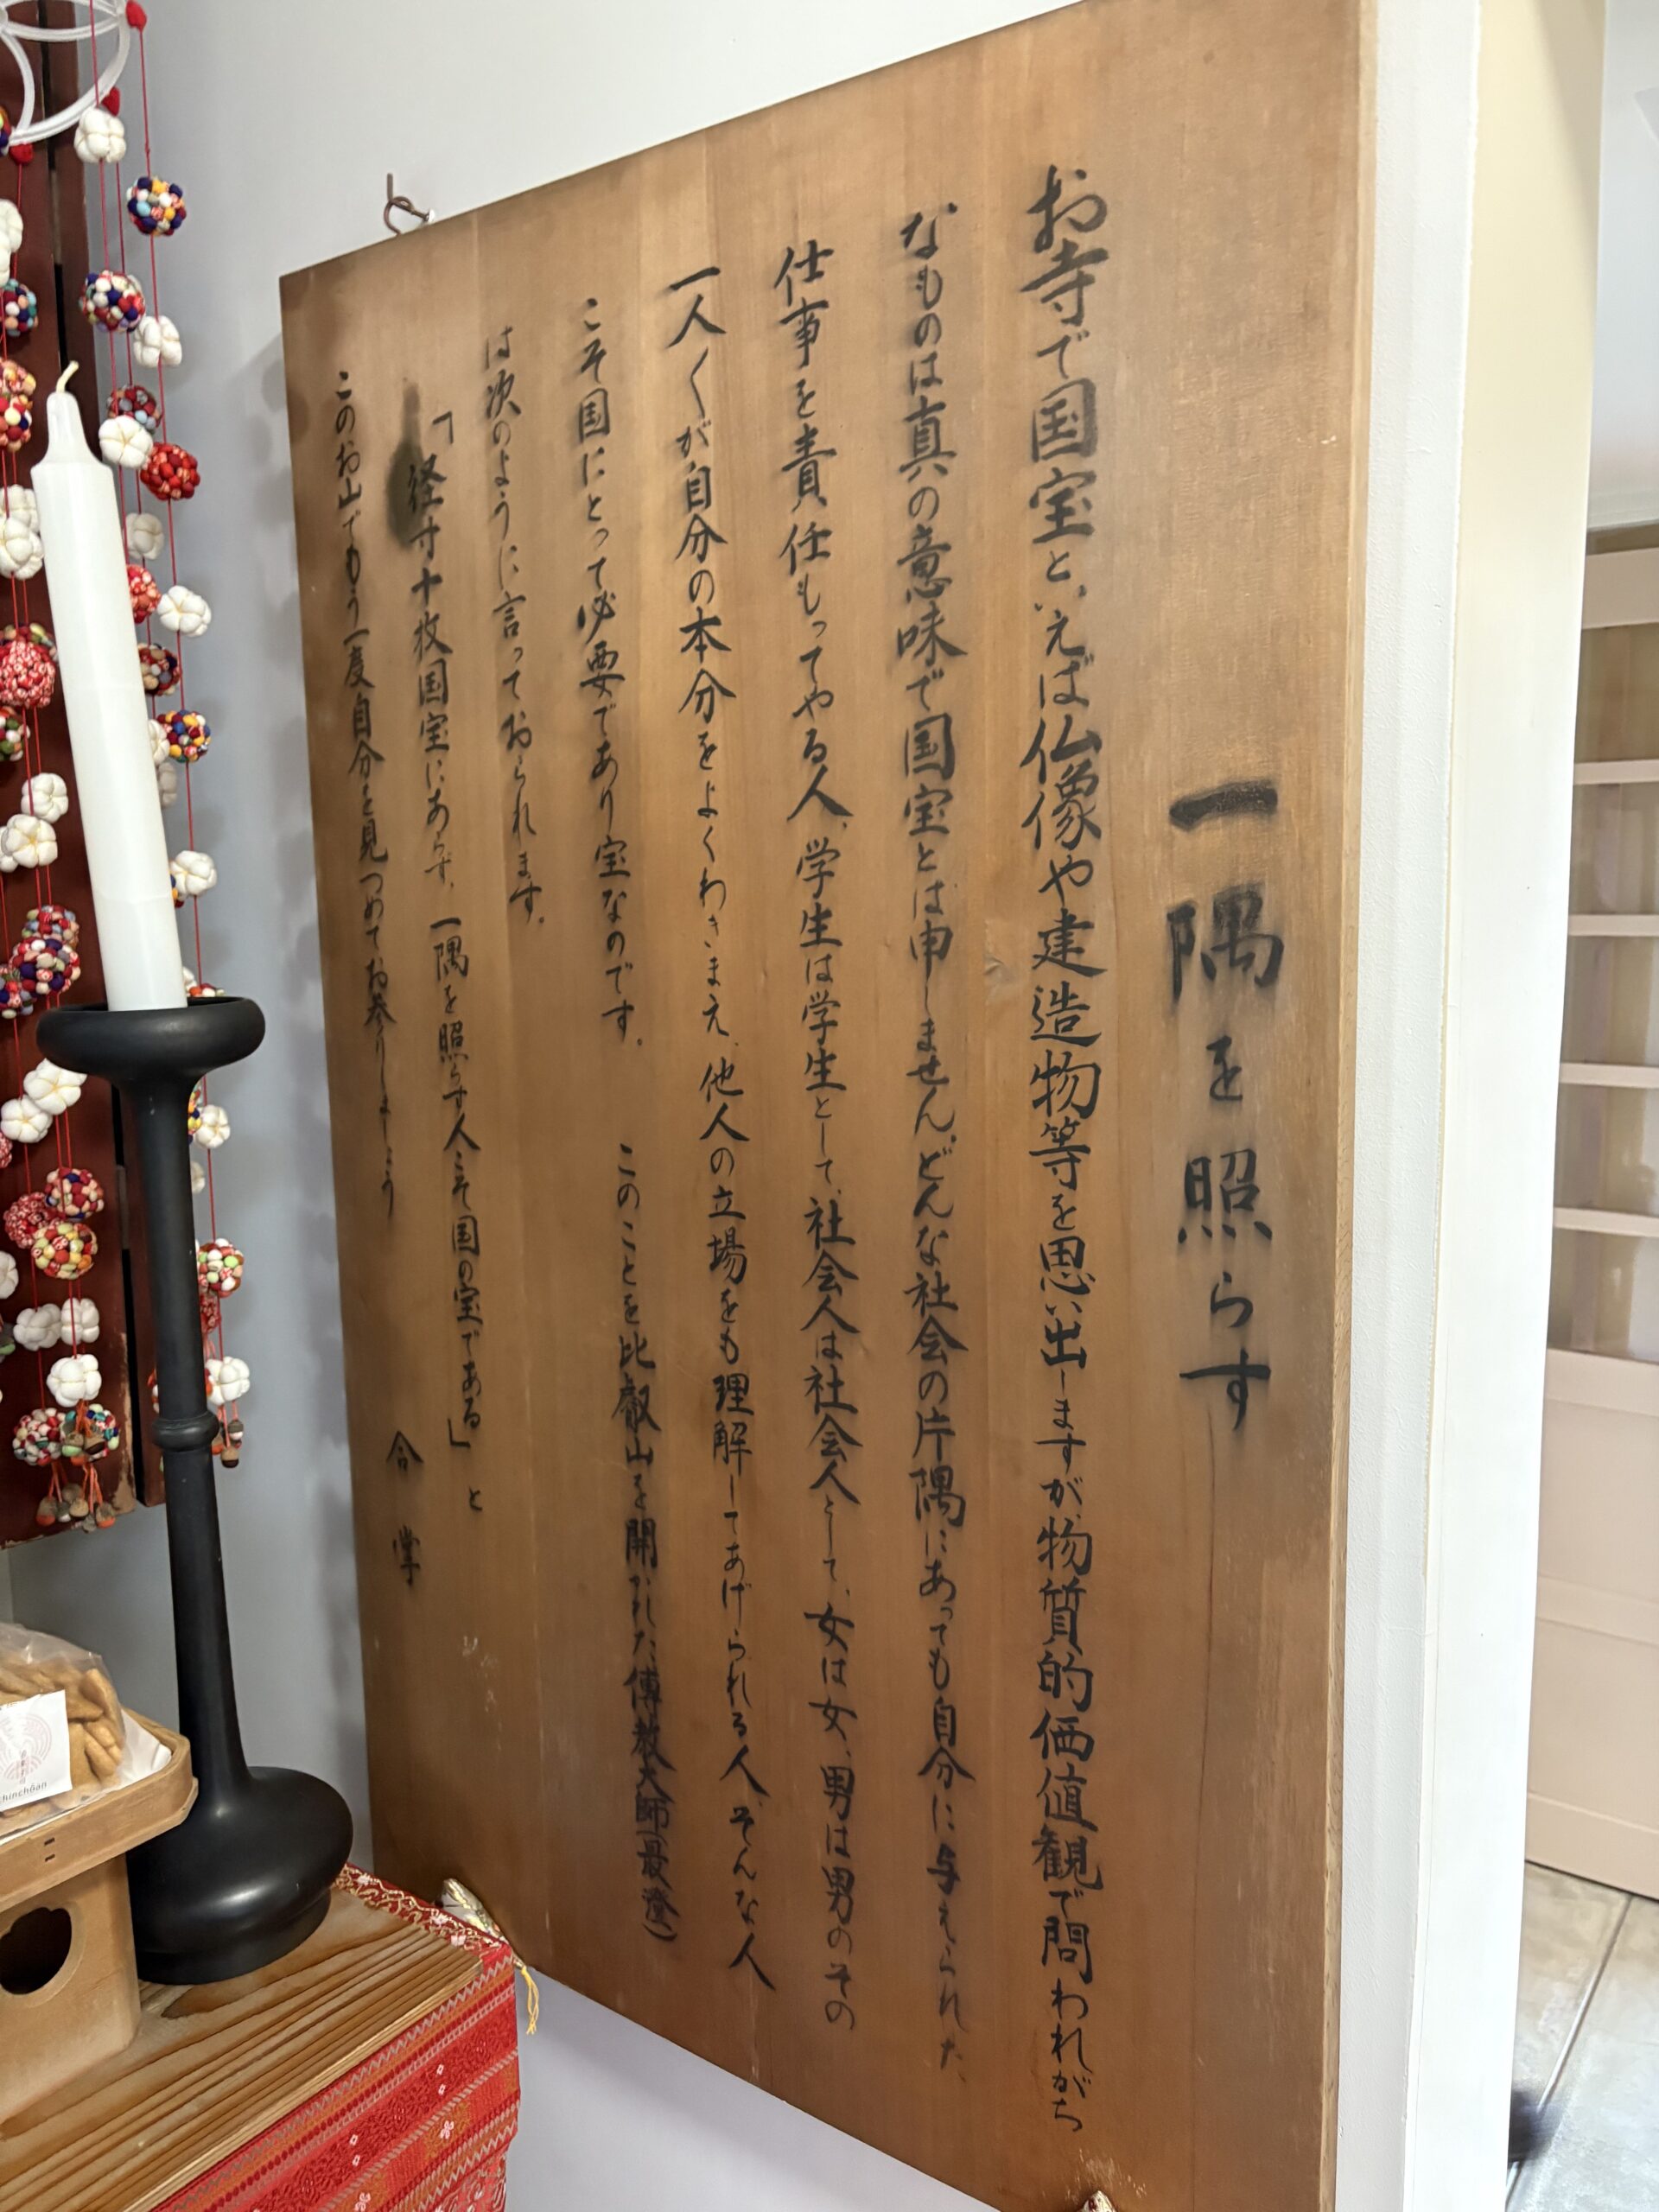 一隅を照らす
お寺で国宝といえば仏像や建造物等を思い出しますが、物質的価値観で問われがち
なものは真の意味で国宝とは申しません。どんな社会の片隅にあっても自分に与えられた
仕事を責任もってやる人、学生は学生として、社会人は社会人として、女は女、男は男のその
一人〱が自分の本分をよくわきまえ、他人の立場をも理解してあげられる人、そんな人
こそ国にとって必要であり宝なのです。　このことを比叡山を開かれた、傳教大師(最澄)
は次のように言っておられます。
「径寸十枚国宝にあらず、一隅を照らす人こそ国の宝である」と
このお山でもう一度自分を見つめてお参りしましょう
合掌
chinchōan